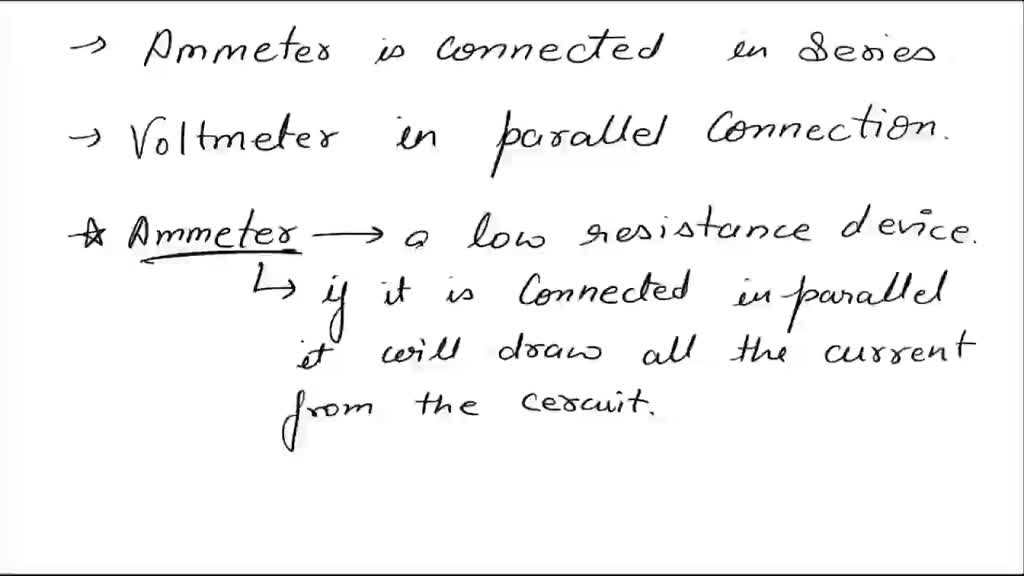 → Ammeter is connected in Series
→ Voltmeter in parallel Connection.
☆ Ammeter → a low resistance device.
↳ if it is Connected in parallel
it will draw all the current
from the cercuit.